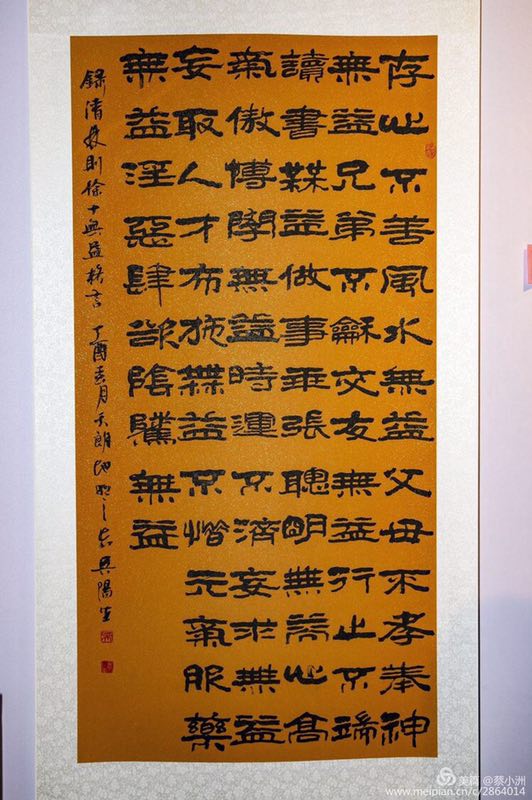 存心不善風水無益父母不孝奉神
無益兄弟不龢交友無益行止不端
讀書無益做事乖張聰明無益心高
氣傲博學無益時運不濟妄求無益
妄取人才布施無益不惜元氣服藥
無益淫惡肆欲陰騭無益
錄清林則徐十無益格言 丁酉春月天朗 吳陽生
美篇 @蔡小洲
www.meipian.cn/c/2864014